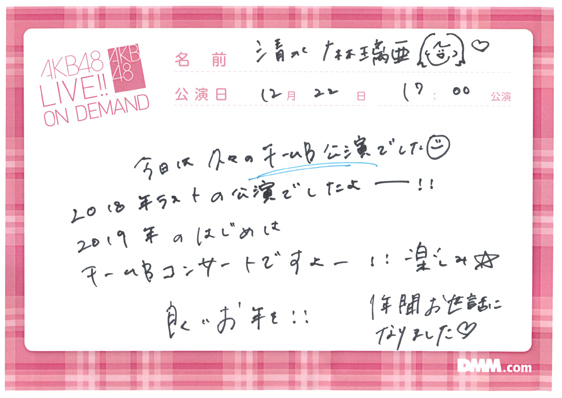 AKB48
LIVE!!
ON DEMAND
AKB
48
名前 清水 麻璃亜 ♡
公演日 12月 22日 17:00 公演
今日は 久々の チームB 公演でした
2018年ラストの公演でしたよー!!
2019年のはじめは
チームBコンサートですよー!! 楽しみ☆
良いお年を!!
1年間お世話に
なりました♡
DMM.com